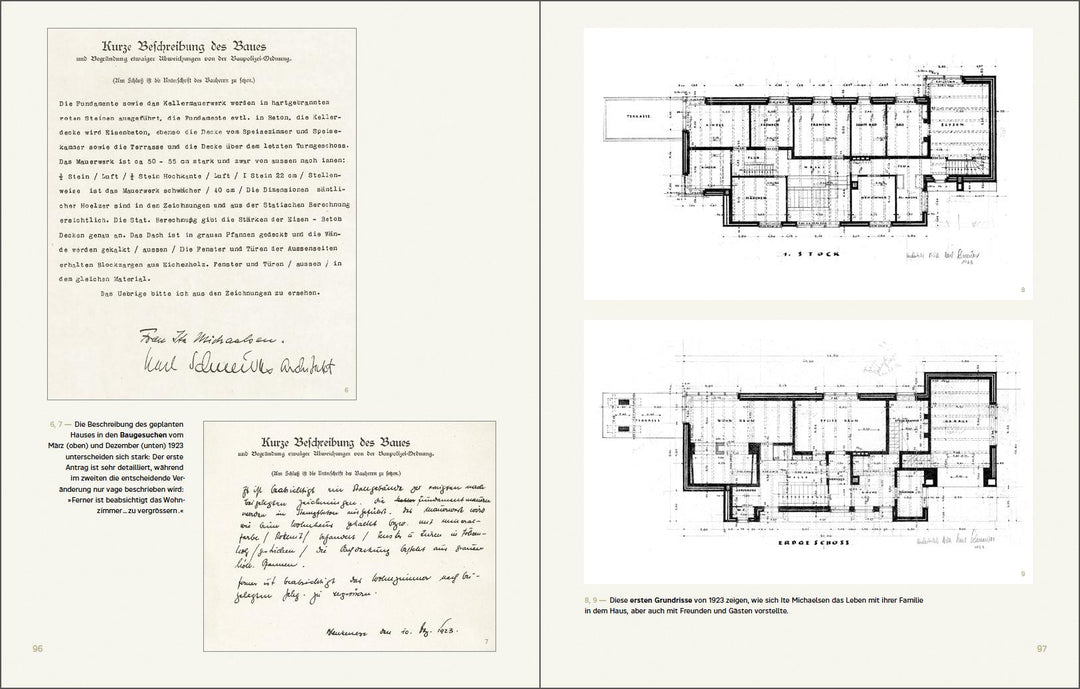 Kurze Beschreibung des Baues
und Begründung etwaiger Abweichungen von der Baupolizei-Ordnung.
(Am Schluß ist die Unterschrift des Bauherrn zu setzen.)
Die Fundamente sowie das Kellermauerwerk werden in hartgebrannten
roten Steinen ausgeführt, die Fundamente evtl. in Beton, die Keller-
decke wird Eisenbeton, ebenso die Decke vom Speisezimmer und Speise-
kammer sowie die Terrasse und die Decke über dem letzten Turmgeschoss.
Das Mauerwerk ist ca 50 - 55 cm stark und zwar von aussen nach innen:
½ Stein / Luft / ½ Stein Hochkante / Luft / I Stein 22 cm / Stellen-
weise ist das Mauerwerk schwächer / 40 cm / Die Dimensionen sämtli-
cher Hoelzer sind in den Zeichnungen und aus der Statischen Berechnung
ersichtlich. Die Stat. Berechnung gibt die Stärken der Eisen - Beton
Decken genau an. Das Dach ist in grauen Pfannen gedeckt und die Wän-
de werden gekalkt / aussen / Die Fenster und Türen der Aussenseiten
erhalten Blockzargen aus Eichenholz. Fenster und Türen / aussen / in
dem gleichen Material.
Das Uebrige bitte ich aus den Zeichnungen zu ersehen.
Frau Ite Michaelsen.
Karl Schneider Architekt
6
6, 7 — Die Beschreibung des geplanten
Hauses in den Baugesuchen vom
März (oben) und Dezember (unten) 1923
unterscheiden sich stark: Der erste
Antrag ist sehr detailliert, während
im zweiten die entscheidende Ver-
änderung nur vage beschrieben wird:
»Ferner ist beabsichtigt das Wohn-
zimmer … zu vergrössern.«
Kurze Beschreibung des Baues
und Begründung etwaiger Abweichungen von der Baupolizei-Ordnung.
(Am Schluß ist die Unterschrift des Bauherrn zu setzen.)
Es ist beabsichtigt ein Stallgebäude zu errichten nach
beigelegten Zeichnungen. Die Fundamentmauern
werden in ausgeführt. Das Mauerwerk wird
wie beim Wohnhaus gekalkt bezw. mit Mineral-
farbe / / Fenster & Türen in Föhren-
holz / / die Dachdeckung besteht aus grauen
holl. Pfannen.
Ferner ist beabsichtigt das Wohnzimmer nach bei-
gelegten Zchg. zu vergrössern.
Blankenese den 10. Dez. 1923.
7
96
TERRASSE
MÄDCHEN
ELTERN
1. STOCK
Karl Schneider
1923
8
WOHNRAUM
SPEISERAUM
GARAGE
ERDGESCHOSS
Karl Schneider
1923
9
8, 9 — Diese ersten Grundrisse von 1923 zeigen, wie sich Ite Michaelsen das Leben mit ihrer Familie
in dem Haus, aber auch mit Freunden und Gästen vorstellte.
97